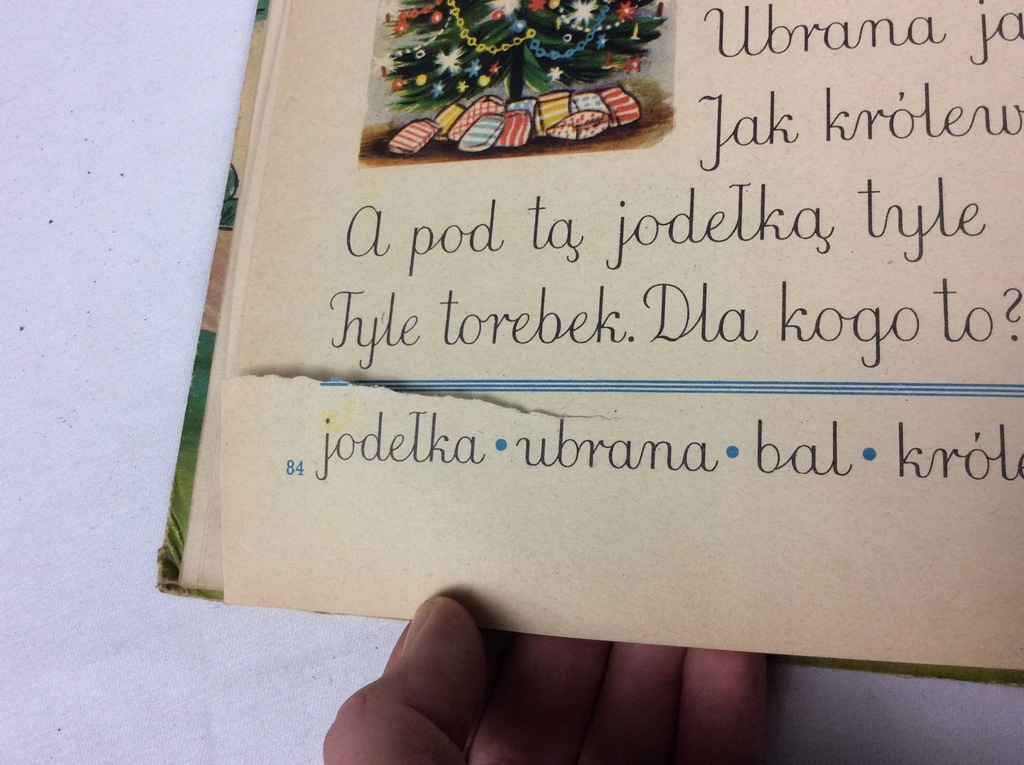 Ubrana ja
Jak królew
A pod tą jodełką tyle
Tyle torebek. Dla kogo to?
jodełka • ubrana • bal • króle
84